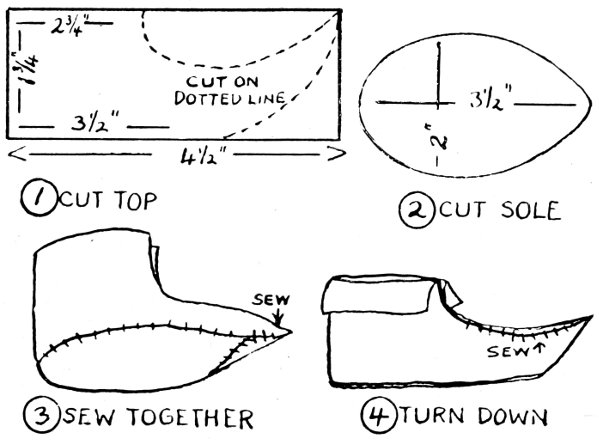 2¾"
1¾"
CUT ON
DOTTED LINE
3½"
4½"
① CUT TOP
3½"
2"
② CUT SOLE
SEW
③ SEW TOGETHER
SEW
④ TURN DOWN